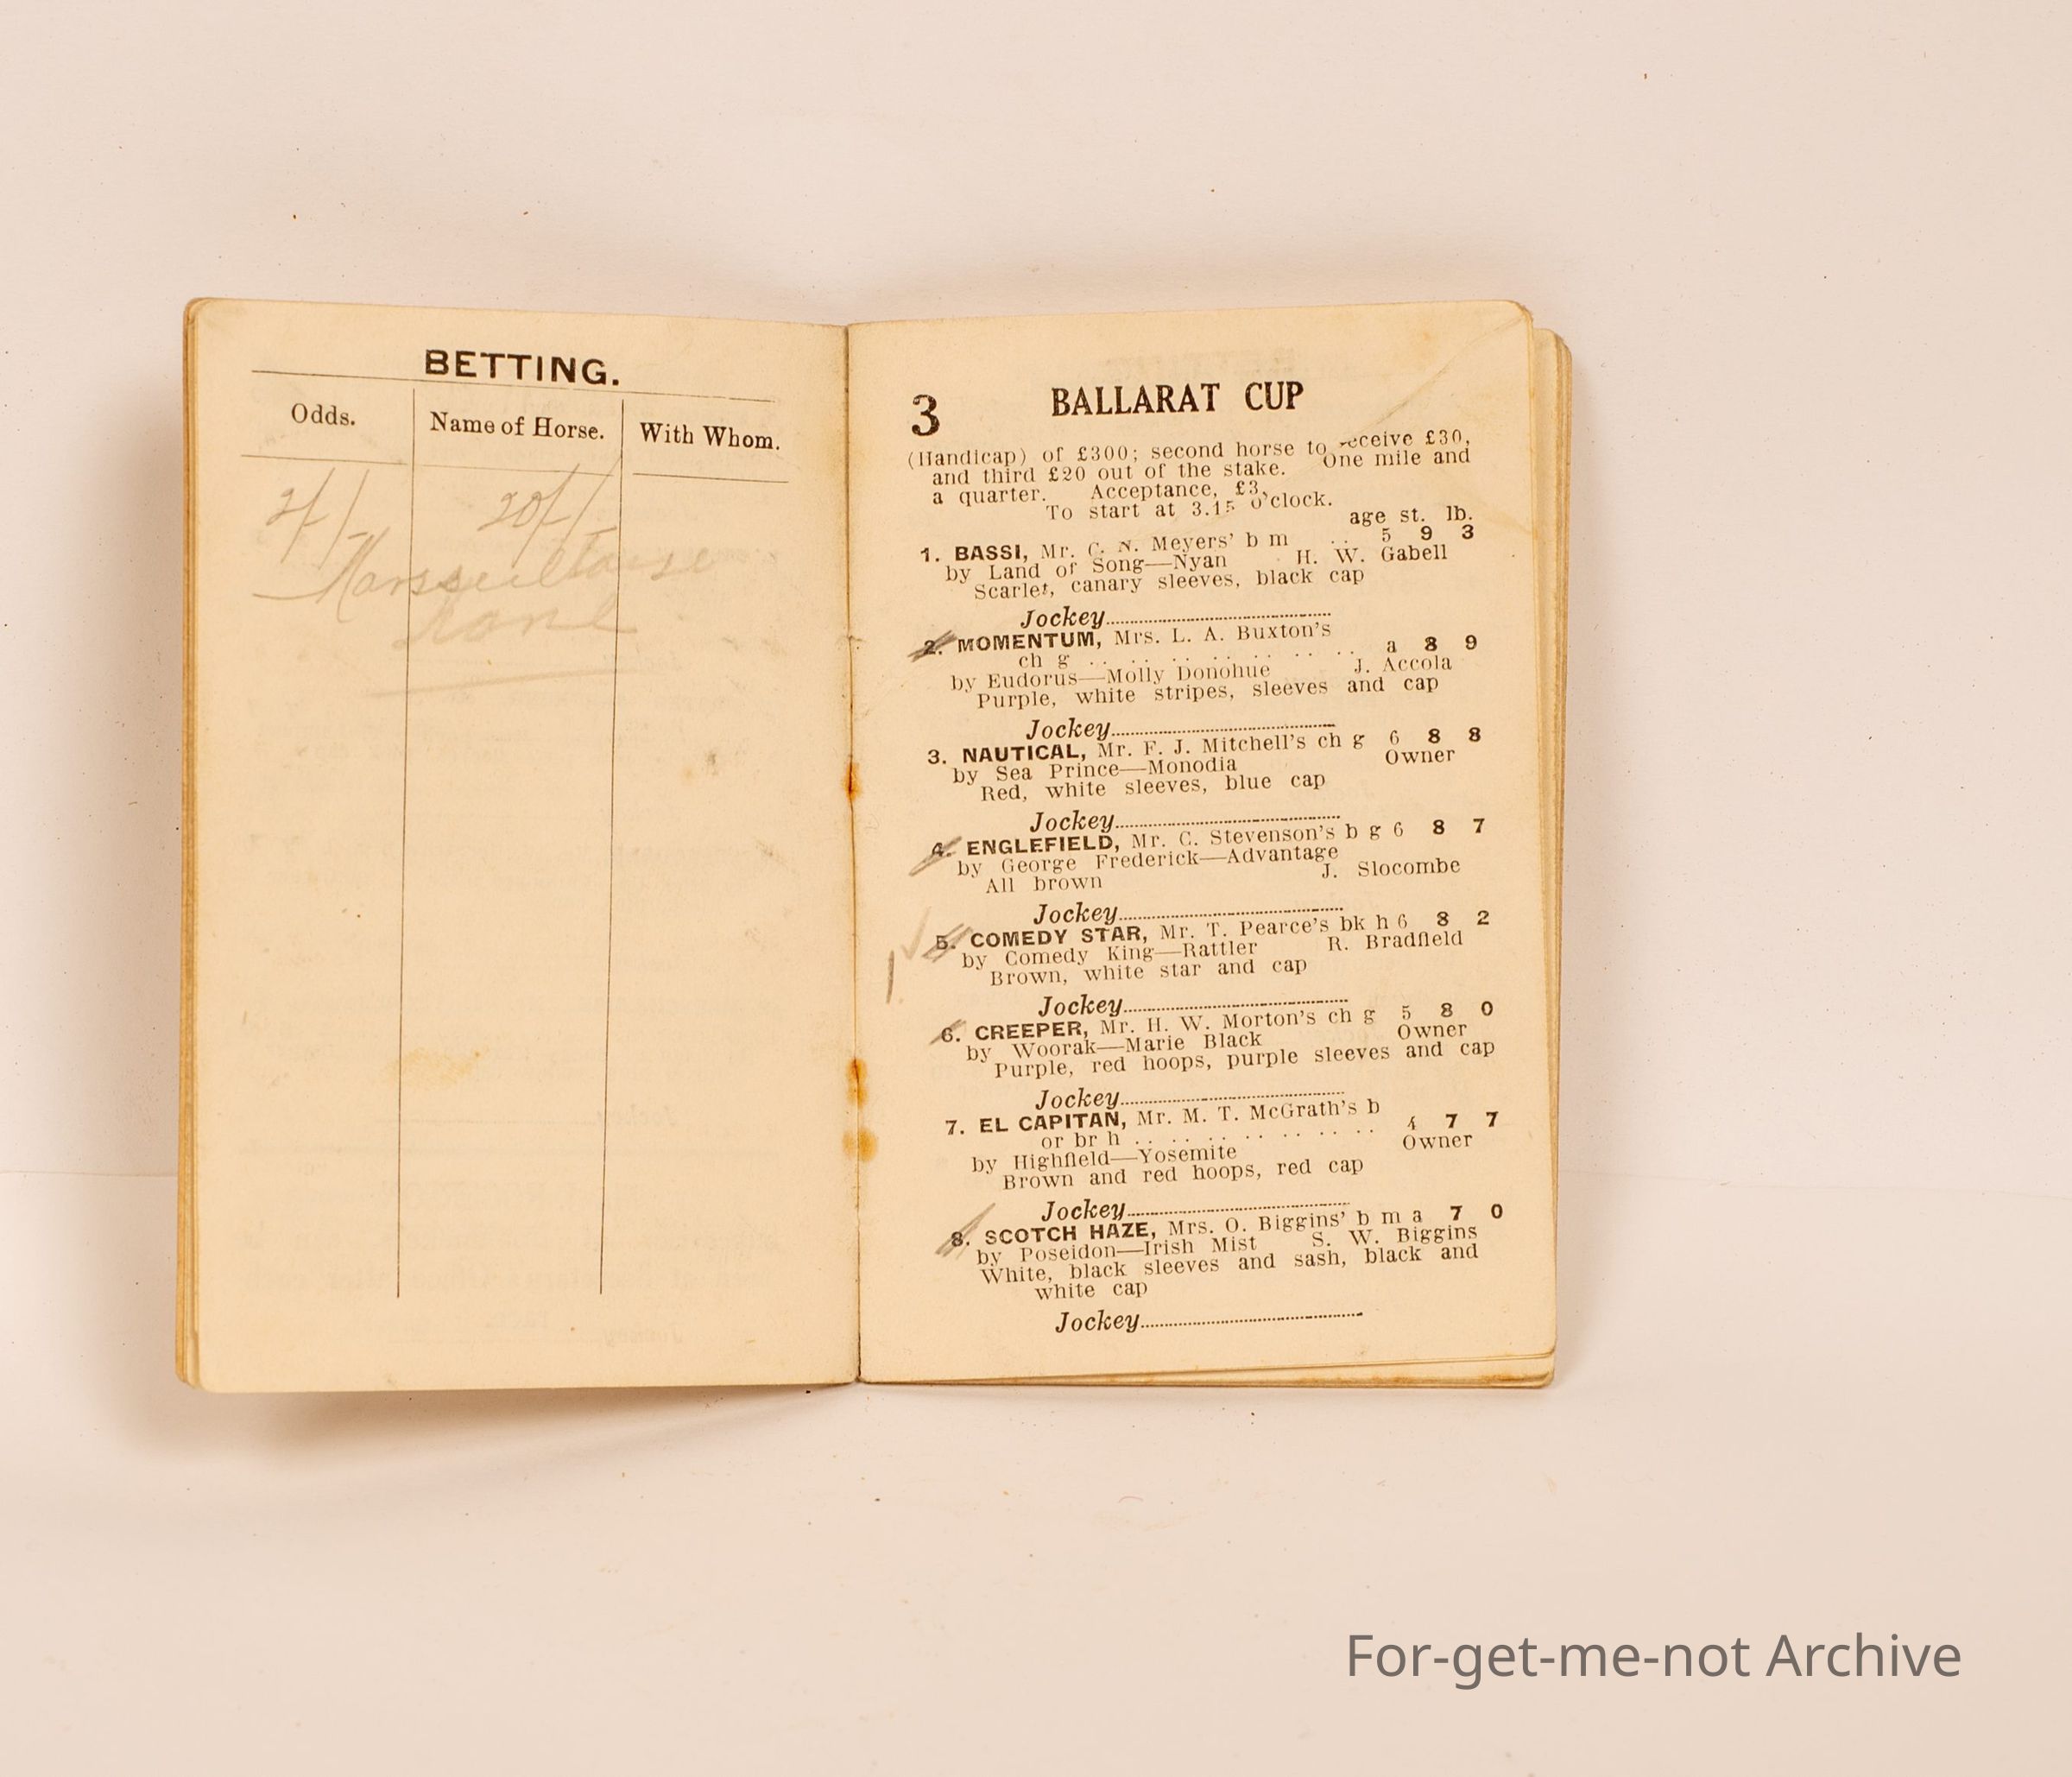 BETTING.
Odds. Name of Horse. With Whom.
2/- 20/-
Marsseillaise
3 BALLARAT CUP
(Handicap) of £300; second horse to receive £30,
and third £20 out of the stake. One mile and
a quarter. Acceptance, £3.
To start at 3.15 o'clock.
age st. lb.
1. BASSI, Mr. C. N. Meyers' b m .. 5 9 3
by Land of Song—Nyan H. W. Gabell
Scarlet, canary sleeves, black cap
Jockey
2. MOMENTUM, Mrs. L. A. Buxton's
ch g .. .. .. .. .. .. .. a 8 9
by Eudorus—Molly Donohue J. Accola
Purple, white stripes, sleeves and cap
Jockey
3. NAUTICAL, Mr. F. J. Mitchell's ch g 6 8 8
by Sea Prince—Monodia Owner
Red, white sleeves, blue cap
Jockey
4. ENGLEFIELD, Mr. C. Stevenson's b g 6 8 7
by George Frederick—Advantage
All brown J. Slocombe
Jockey
5. COMEDY STAR, Mr. T. Pearce's bk h 6 8 2
by Comedy King—Rattler R. Bradfield
Brown, white star and cap
Jockey
6. CREEPER, Mr. H. W. Morton's ch g 5 8 0
by Woorak—Marie Black Owner
Purple, red hoops, purple sleeves and cap
Jockey
7. EL CAPITAN, Mr. M. T. McGrath's b
or br h .. .. .. .. .. .. .. 4 7 7
by Highfield—Yosemite Owner
Brown and red hoops, red cap
Jockey
8. SCOTCH HAZE, Mrs. O. Biggins' b m a 7 0
by Poseidon—Irish Mist S. W. Biggins
White, black sleeves and sash, black and
white cap
Jockey
For-get-me-not Archive